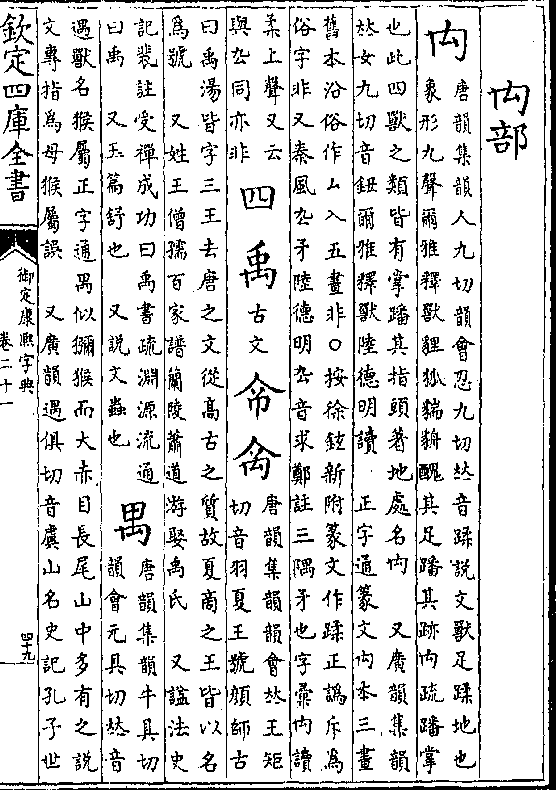 禸部
禸
唐韻集韻人九切韻會忍九切𠀤音蹂說文獸足蹂地也
象形九聲爾雅釋獸貍狐貒貈醜其足蹯其跡禸疏蹯掌
也此四獸之類皆有掌蹯其指頭著地處名禸 又廣韻集韻
𠀤女九切音鈕爾雅釋獸陸德明讀 正字通篆文禸本三畫
舊本沿俗作厶入五畫非○按徐鉉新附篆文作蹂正譌斥為
俗字非又秦風厹矛陸德明厹音求鄭註三隅矛也字彙禸讀
柔上聲又云
與厹同亦非
四 禹 古文
唐韻集韻韻會𠀤王矩
切音羽夏王號顏師古
曰禹湯皆字三王去唐之文從高古之質故夏商之王皆以名
為號 又姓王僧孺百家譜蘭陵蕭道游娶禹氏 又謚法史
記裴註受禪成功曰禹書疏淵源流通
曰禹 又玉篇舒也 又說文蟲也
禺
唐韻集韻牛具切
韻會元具切𠀤音
遇獸名猴屬正字通禺似獼猴而大赤目長尾山中多有之說
文專指為母猴屬誤 又廣韻遇俱切音虞山名史記孔子世
欽定四庫全書
御定康熙字典
卷二十一
四十九